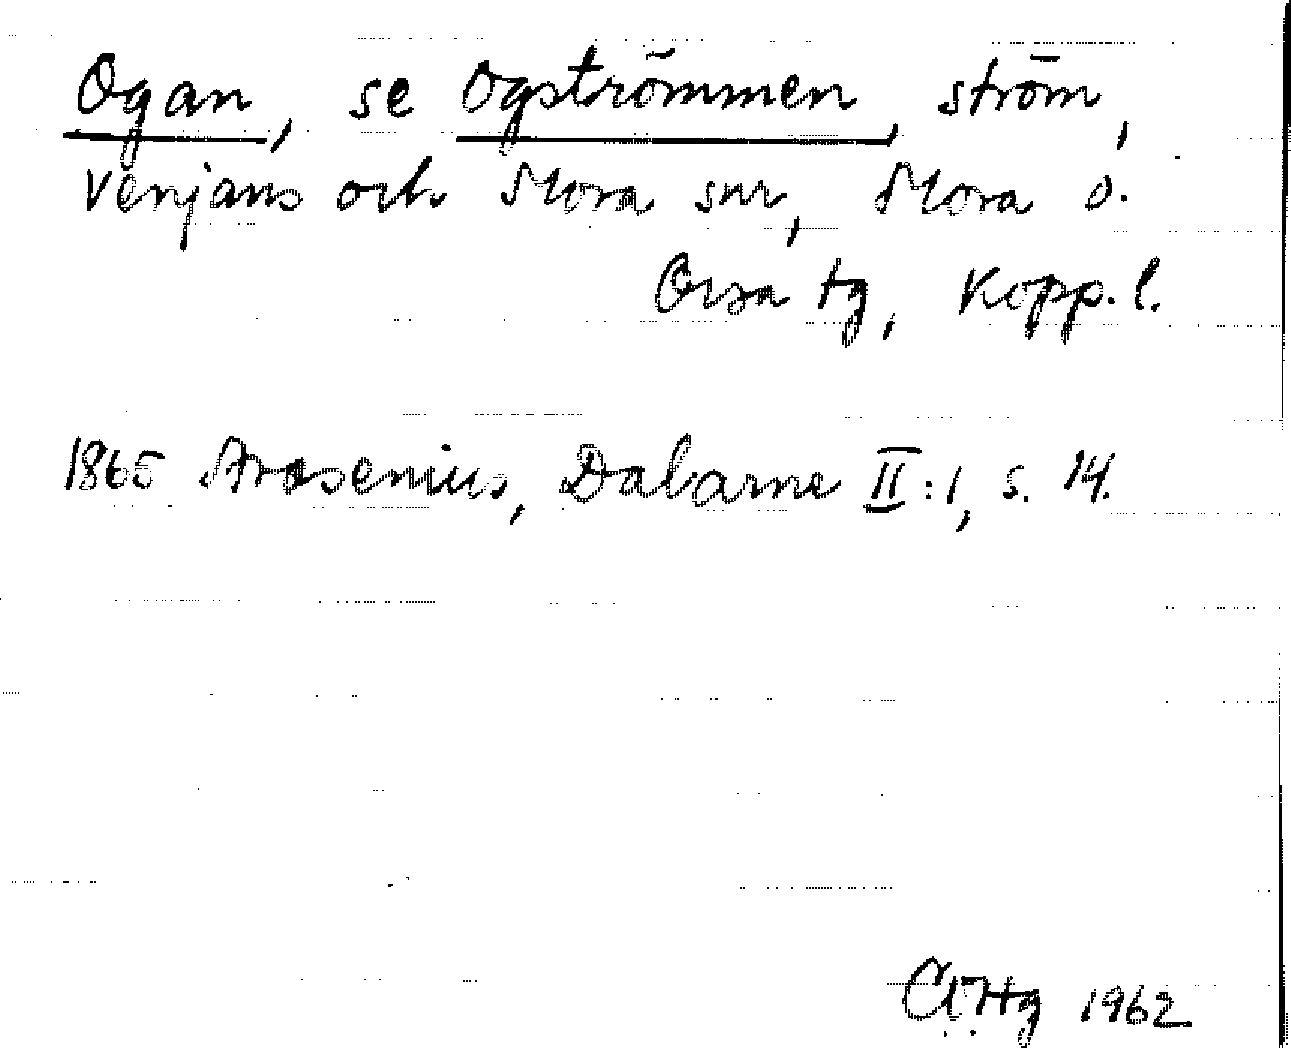 Ogan, se Ogströmmen, ström,
Venjans och Mora snr, Mora o.
Orsa tg, Kopp. l.
1865 Arosenius, Dalarne II:1, s. 14.
1962